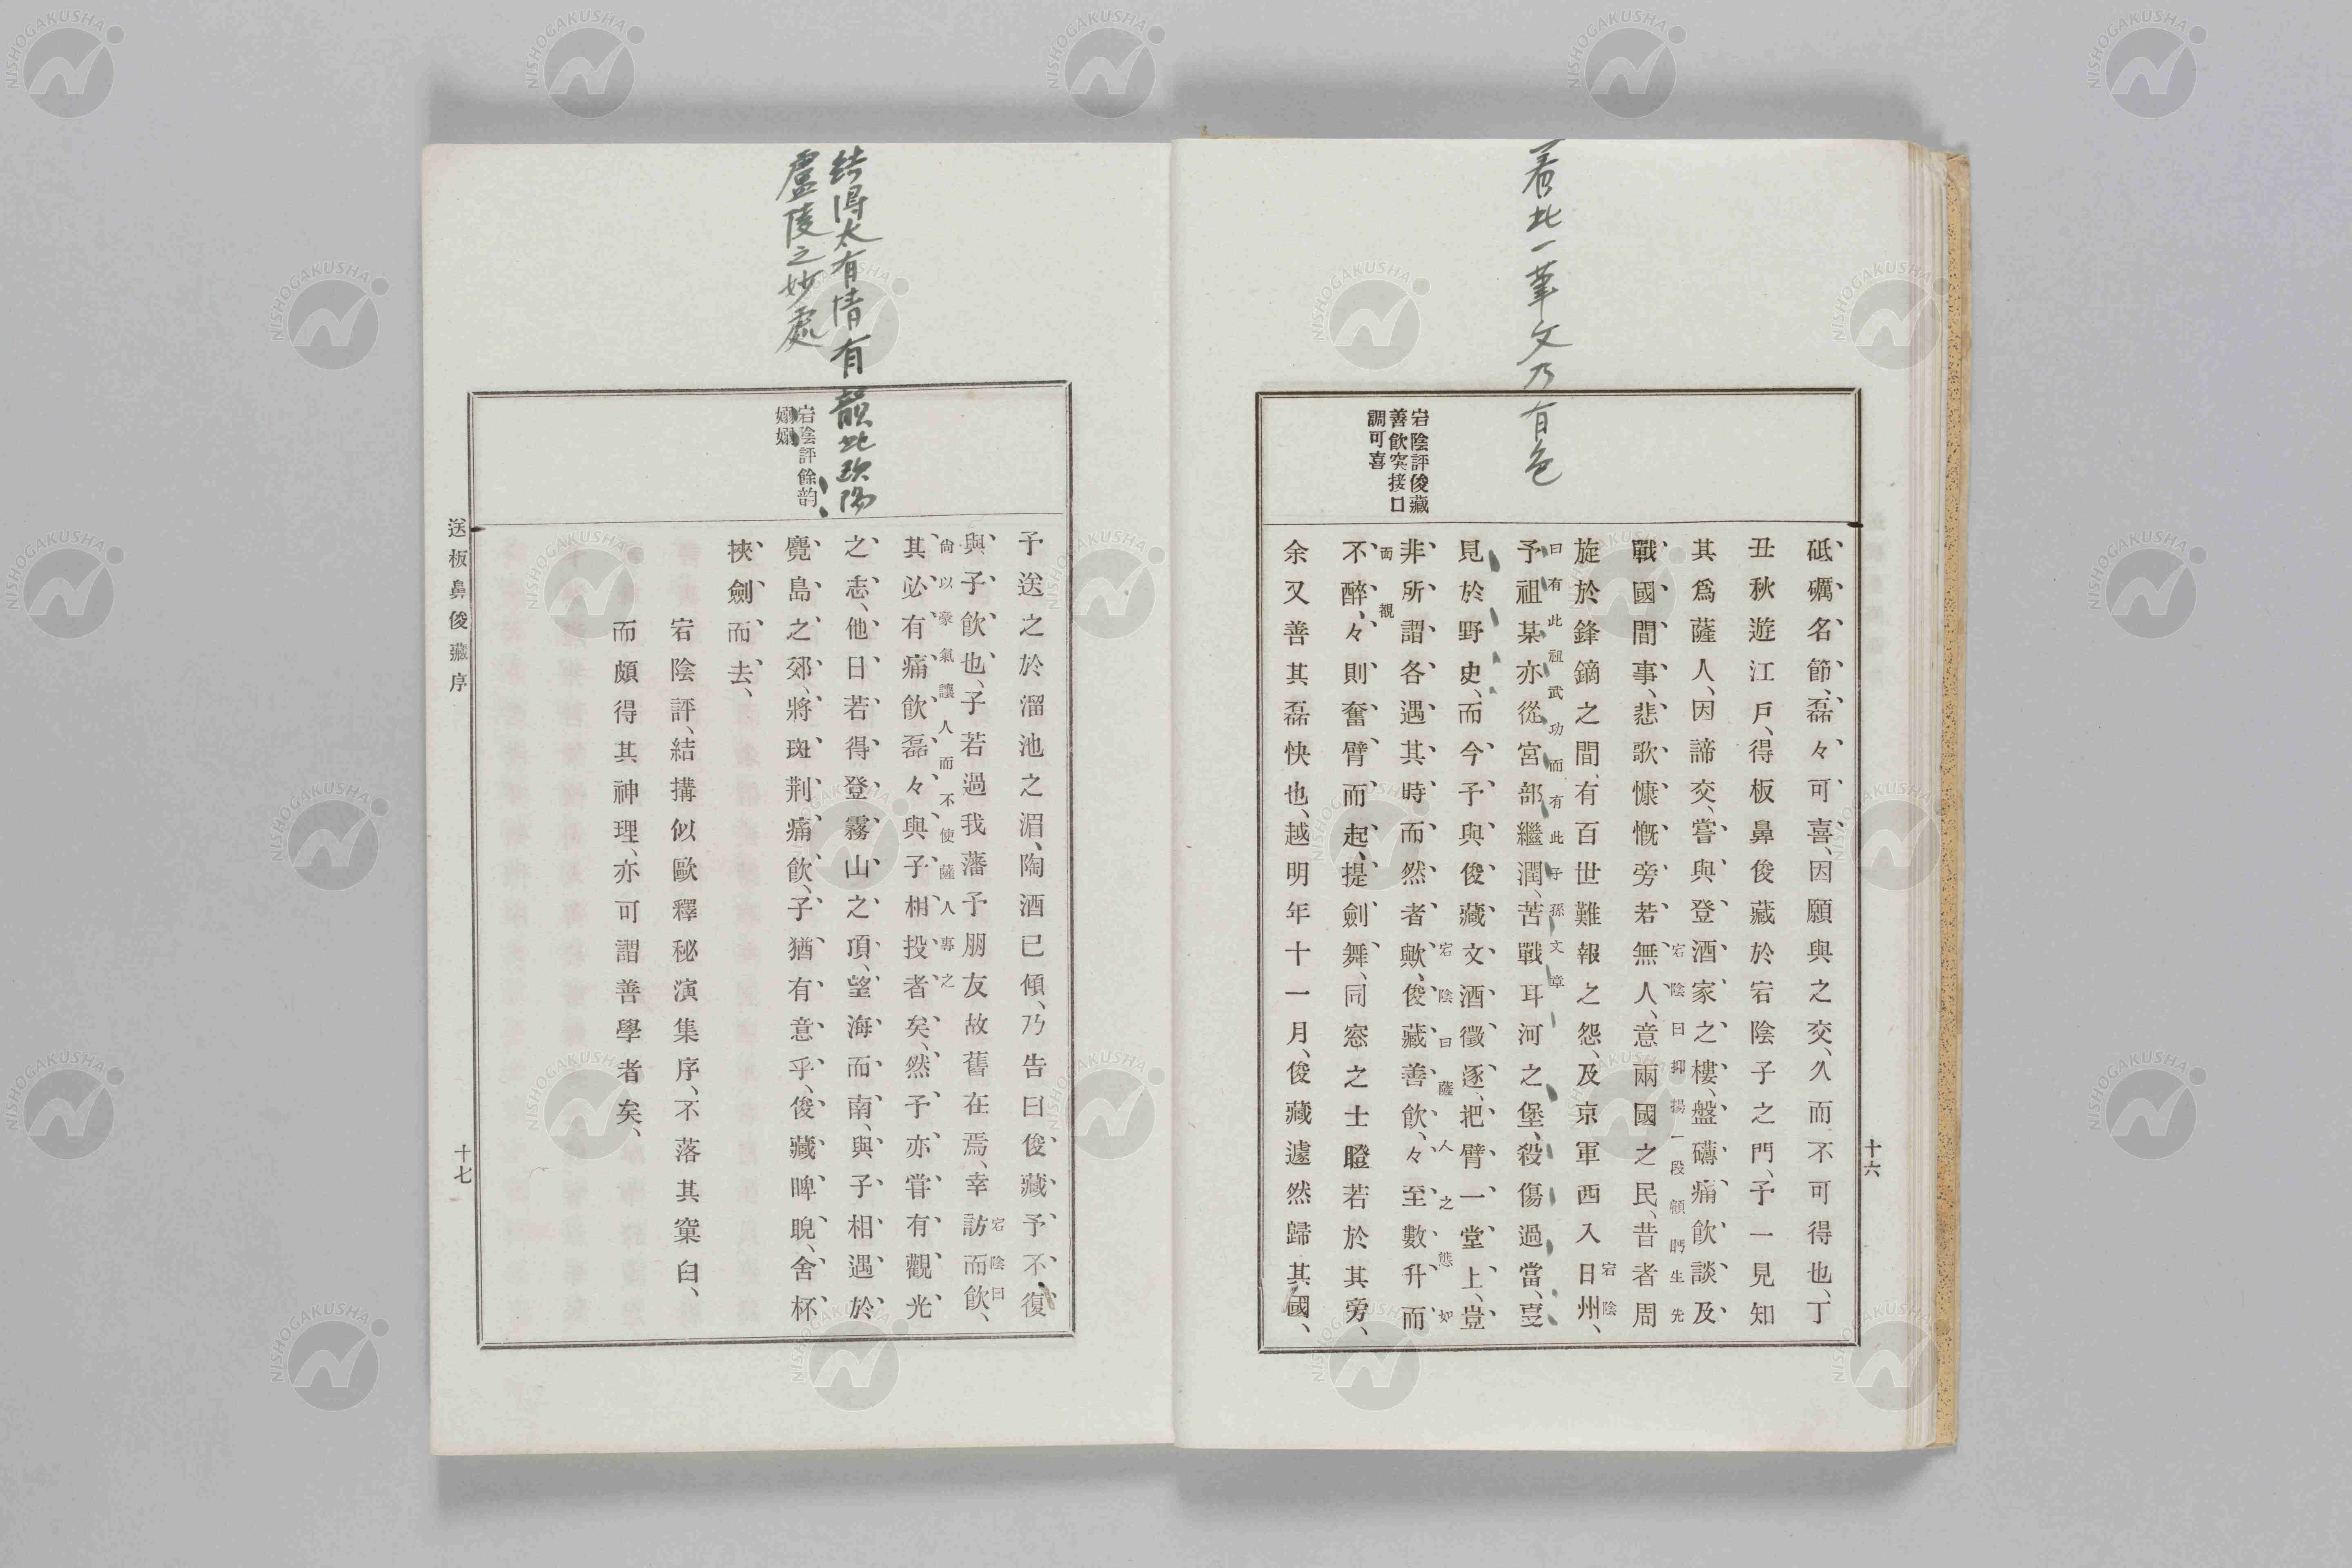 着此一筆文乃有色
宕陰評俊藏
善飲突接口
調可喜
砥礪名節、磊々可喜、因願與之交、久而不可得也、丁
丑秋遊江戶、得板鼻俊藏於宕陰子之門、予一見知
其爲薩人、因諦交、嘗與登酒家之樓、盤礴痛飲、談及
戰國間事、悲歌慷慨旁若無人、意兩國之民、昔者周
宕陰曰抑揚一段顧眄生先
旋於鋒鏑之間、有百世難報之怨、及京軍西入日州、
宕陰
予祖某亦從宮部繼潤、苦戰耳河之堡、殺傷過當、亟
曰有此祖武功而有此子孫文章
見於野史、而今予與俊藏文酒徵逐、把臂一堂上、豈
非所謂各遇其時而然者歟、俊藏善飲、々至數升而
宕陰曰薩人之態如
不醉、々則奮臂而起、提劍舞、同窓之士瞪若於其旁、
面觀
余又善其磊快也、越明年十一月、俊藏遽然歸其國、
十六
結得太有情有韻此歐陽
盧陵之妙處
宕陰評餘韵
嫋嫋
予送之於溜池之湄、陶酒已傾、乃告曰俊藏、予不復
與子飲也、子若過我藩予朋友故舊在焉、幸訪而飲、
宕陰曰
其必有痛飲磊々與子相投者矣、然予亦嘗有觀光
尙以豪氣讓人而不使薩人專之
之志、他日若得登霧山之頂、望海而南、與子相遇於
麑島之郊、將斑荆痛飲、子猶有意乎、俊藏睥睨、舍杯
挾劍而去、
宕陰評、結搆似歐釋秘演集序、不落其窠臼、
而頗得其神理、亦可謂善學者矣、
送板鼻俊藏序
十七